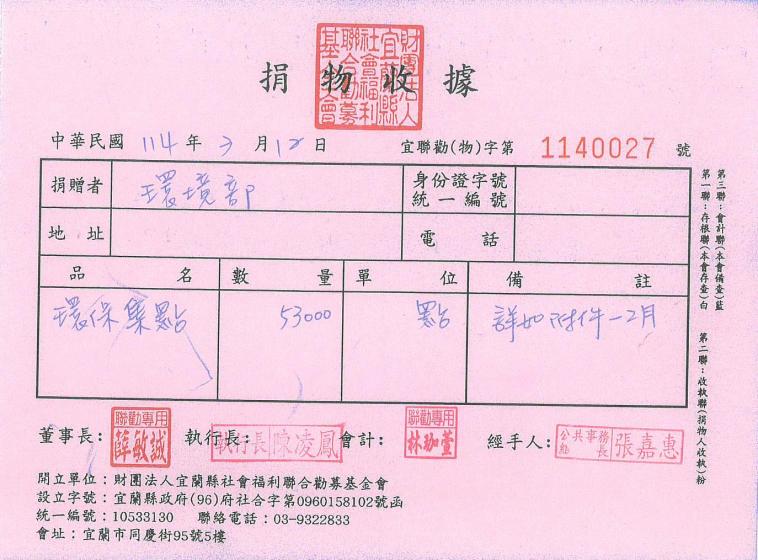 捐物收據
財團法人
宜蘭縣
社會福利
聯合勸募
基金會
中華民國 114 年 3 月 12 日 宜聯勸(物)字第 1140027 號
捐贈者 環境部 身份證字號 統一編號
地址 電話
品名 數量 單位 備註
環保集點 53000 點 詳如附件一2月
董事長: 聯勸專用 薛敏誠 執行長: 執行長 陳凌鳳 會計: 聯勸專用 林珈萱 經手人: 公共事務組長 張嘉惠
開立單位:財團法人宜蘭縣社會福利聯合勸募基金會
設立字號:宜蘭縣政府(96)府社合字第0960158102號函
統一編號:10533130 聯絡電話:03-9322833
會址:宜蘭市同慶街95號5樓
第一聯:存根聯(本會存查)白 第二聯:收執聯(捐物人收執)粉
第三聯:會計聯(本會備查)藍